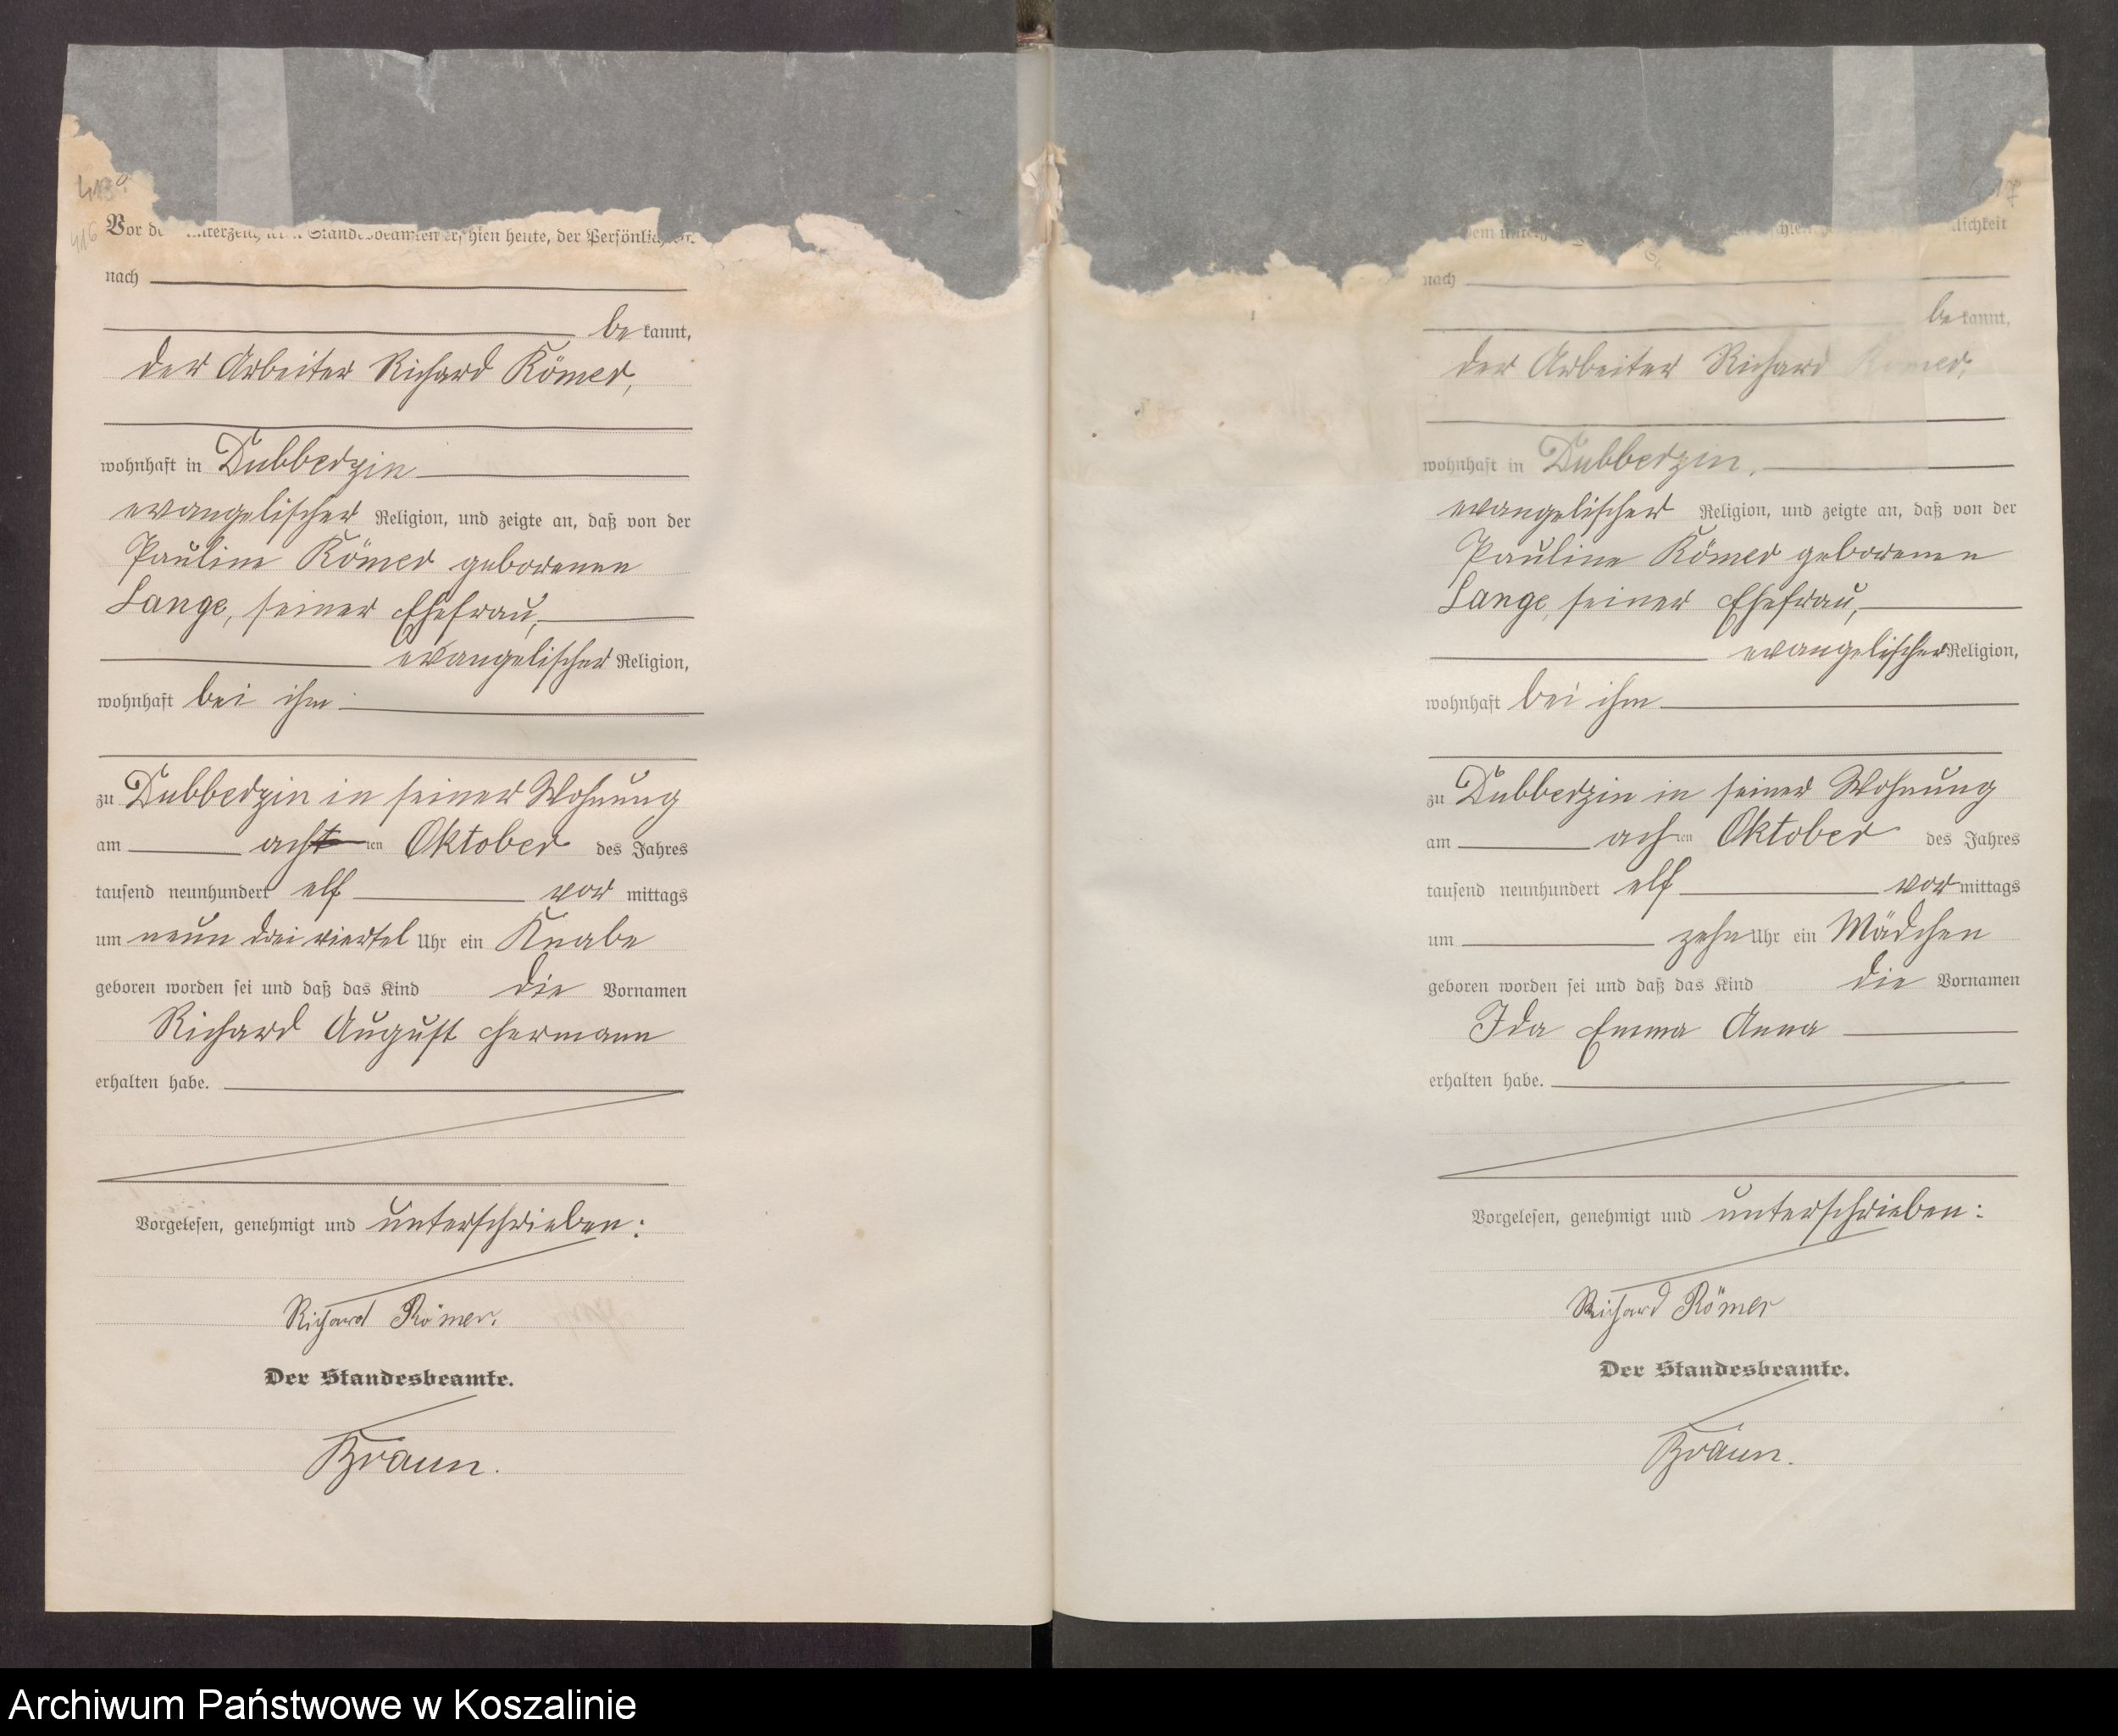 416
Vor de Standesbeamten erschien heute, der Persönlich
nach
be kannt,
der Arbeiter Richard Römer,
wohnhaft in Dubberzin
evangelischer Religion, und zeigte an, daß von der
Pauline Römer geborenen
Lange, seiner Ehefrau,
evangelischer Religion,
wohnhaft bei ihm
zu Dubberzin in seiner Wohnung
am acht ten Oktober des Jahres
tausend neunhundert elf vor mittags
um neun drei viertel Uhr ein Knabe
geboren worden sei und daß das Kind die Vornamen
Richard August Hermann
erhalten habe.
Vorgelesen, genehmigt und unterschrieben:
Richard Römer.
Der Standesbeamte.
Braun.
dem lichkeit
nach
be kannt,
der Arbeiter Richard Römer,
wohnhaft in Dubberzin.
evangelischer Religion, und zeigte an, daß von der
Pauline Römer geborenen
Lange, seiner Ehefrau,
evangelischer Religion,
wohnhaft bei ihm
zu Dubberzin in seiner Wohnung
am ach ten Oktober des Jahres
tausend neunhundert elf vor mittags
um zehn Uhr ein Mädchen
geboren worden sei und daß das Kind die Vornamen
Ida Emma Anna
erhalten habe.
Vorgelesen, genehmigt und unterschrieben:
Richard Römer
Der Standesbeamte.
Braun.
Archiwum Państwowe w Koszalinie